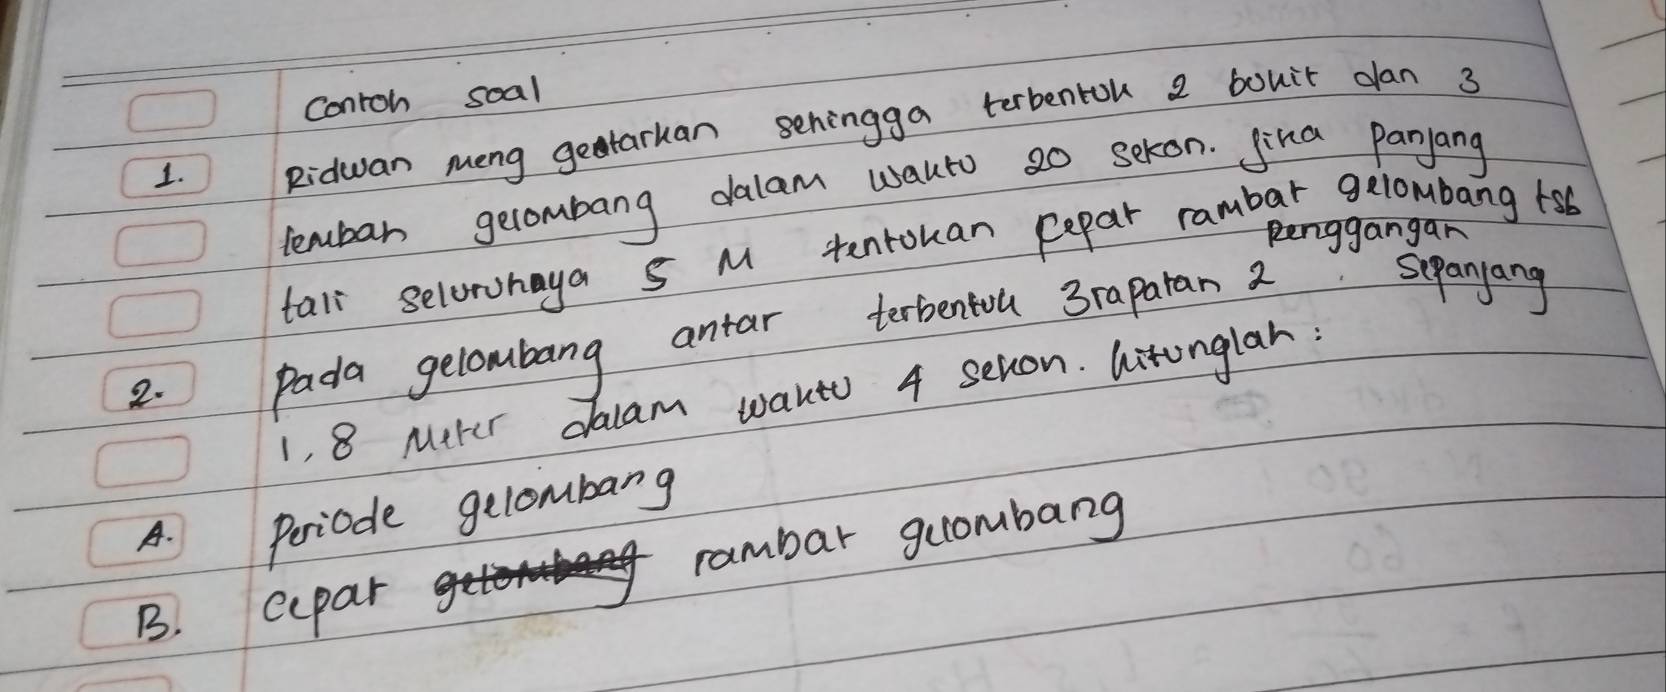 Contoh soal
1. Ridwan meng getarkan sehingga terbentuk 2 bukit dan 3
lembah gelombang dalam waktu 20 sekon. Jika Panjang
tali seluruhnya 5 M tentukan cepat rambat gelombang tsb
Renggangan
2. Pada gelombang antar terbentuk 3 rapatan 2 . Sepanjang
1,8 Meter dalam waktu 4 sekon. hitunglah :
A. Periode gelombang
B. cepat gelombang rambat gelombang